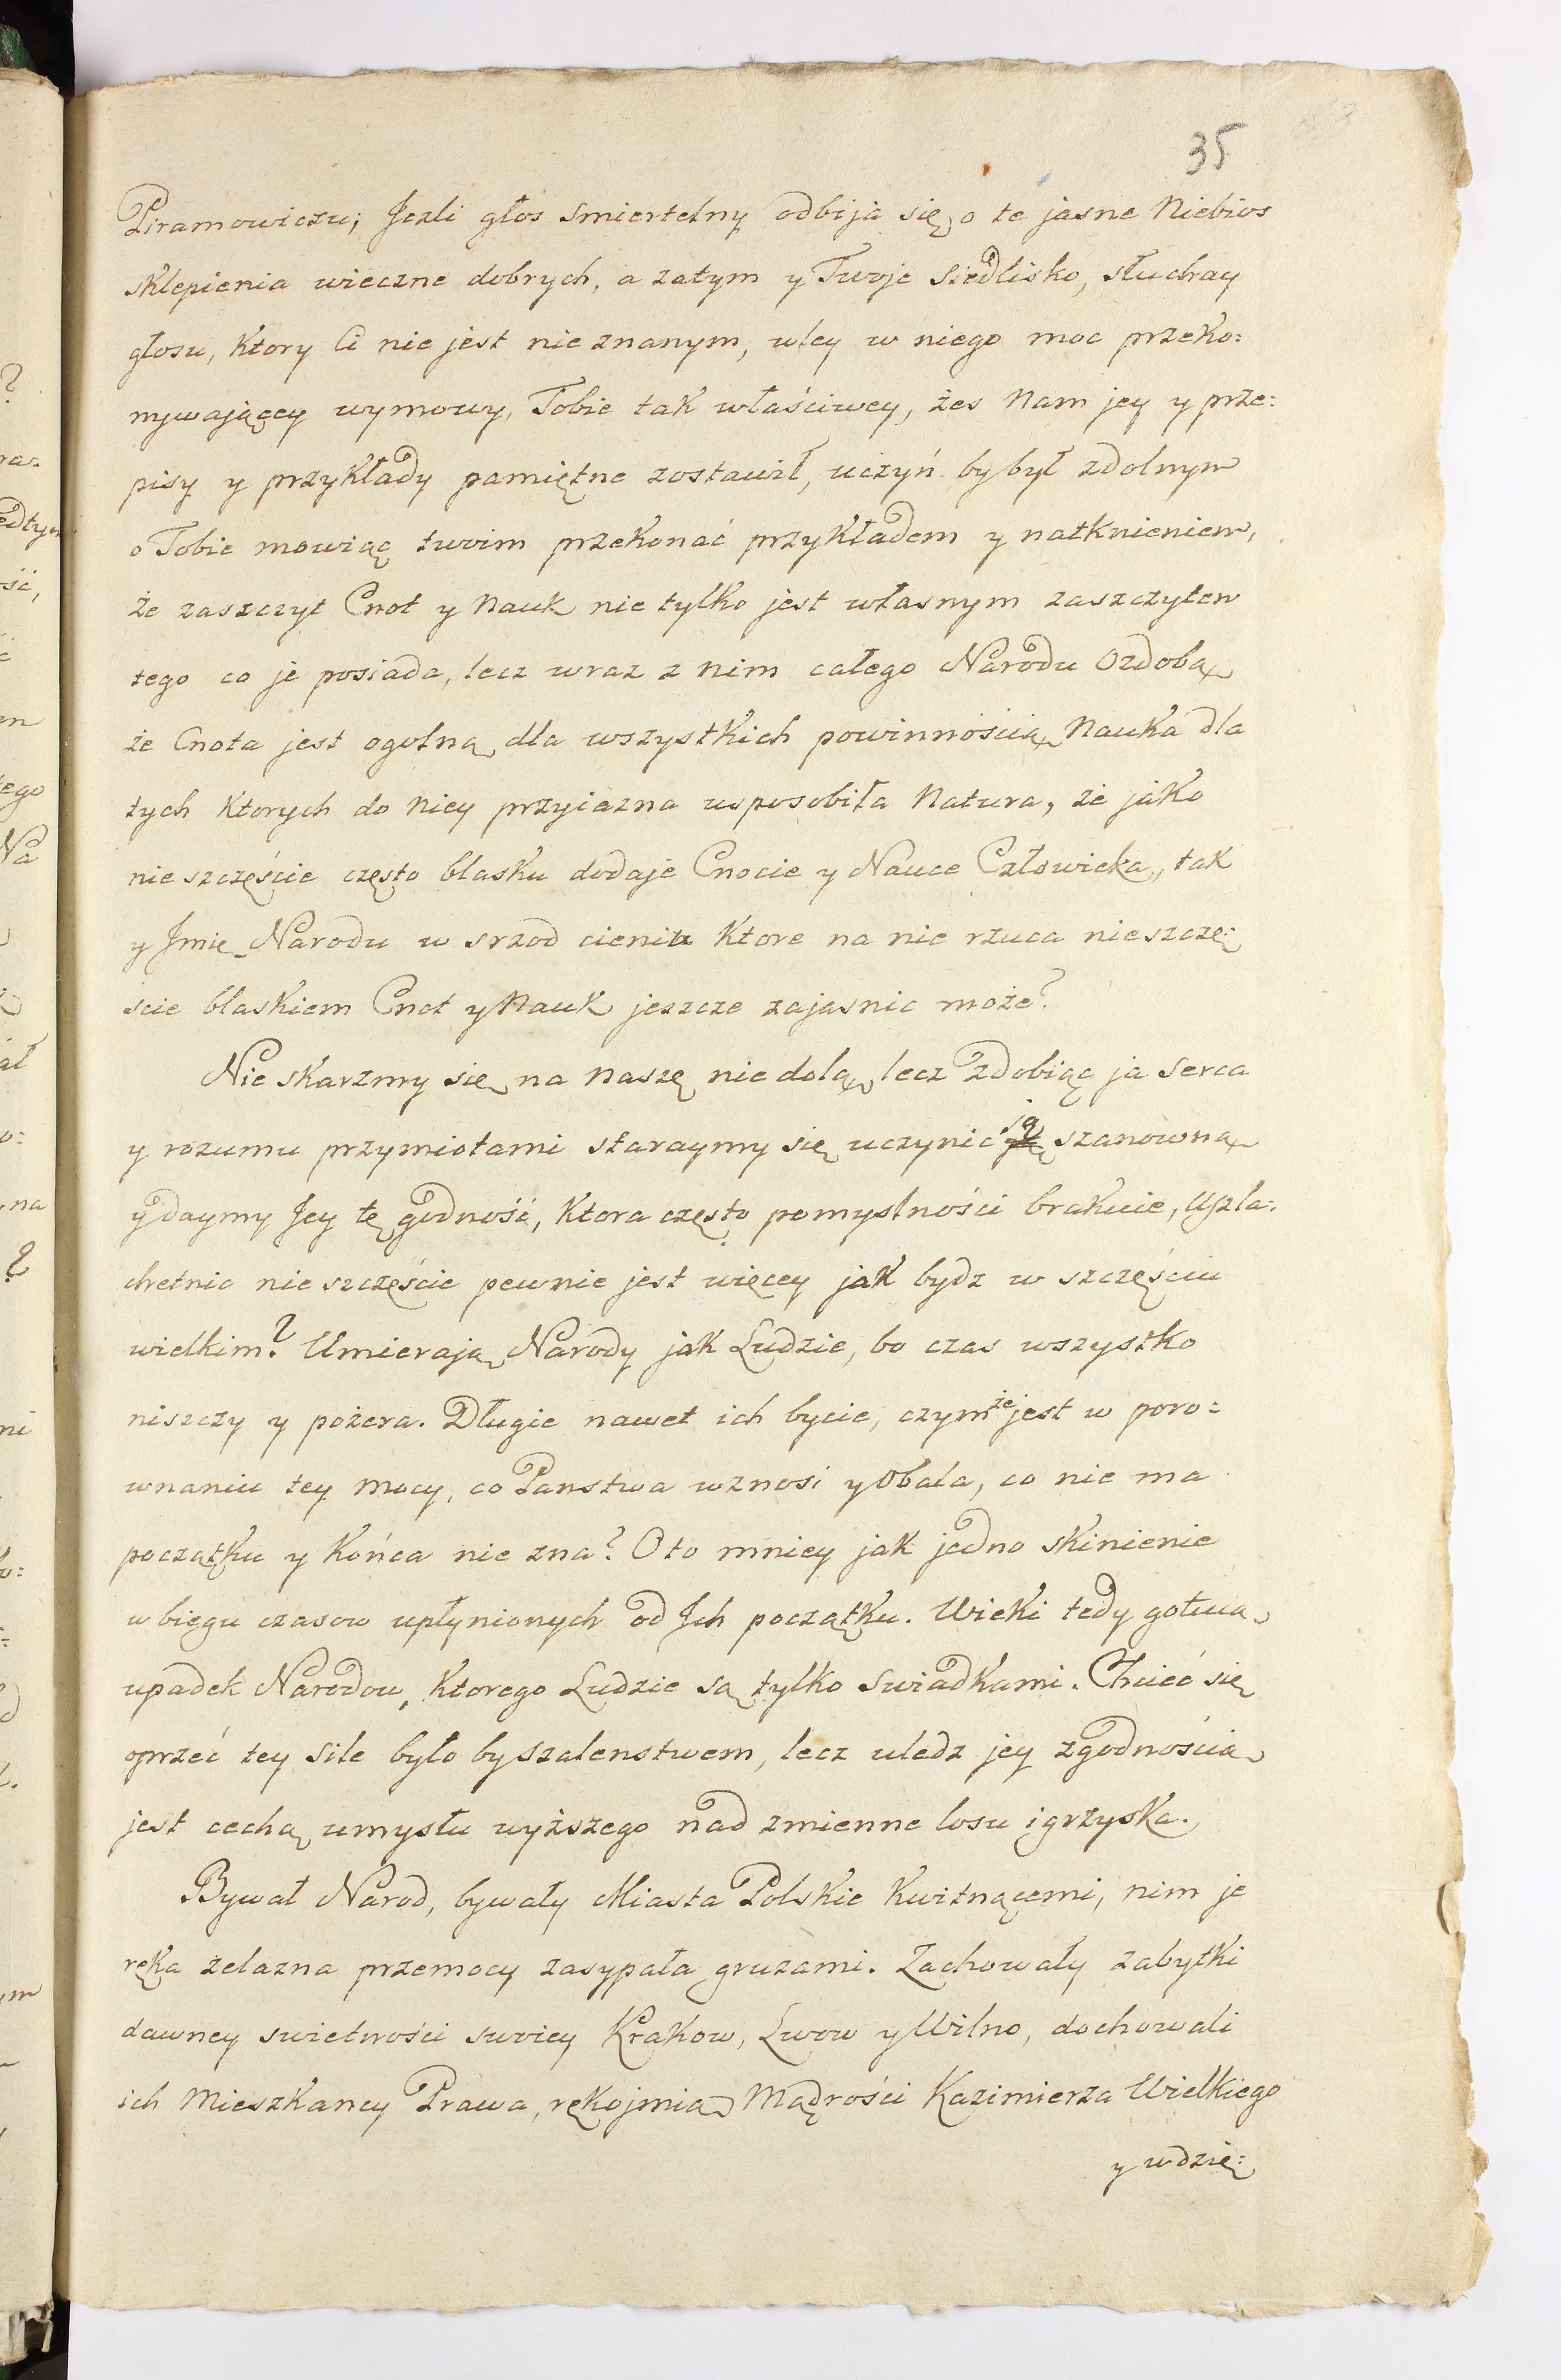 35
Piramowiczu; Jezli głos smiertelny odbija się o te jasne Niebios
sklepienia wieczne dobrych, a zatym y Twoje siedlisko, słuchay
głosu, Ktory Ci nie jest nie znanym, wley w niego moc przeko=
nywającey wymowy, Tobie tak właściwey, żes Nam jey y prze=
pisy y przykłady pamiętne zostawił, uczyń by był zdolnym
o Tobie mowiąc twoim przekonać przykładem y natknieniem,
że zaszczyt Cnot y Nauk nie tylko jest własnym zaszczytem
tego co je posiada, lecz wraz z nim całego Narodu Ozdobą,
że Cnota jest ogolną dla wszystkich powinnością, Nauka dla
tych Ktorych do Niey przyiazna usposobiła Natura, że jako
nie szczęście często blasku dodaje Cnocie y Nauce Człowieka, tak
y Jmie Narodu w srzod cieniu Ktore na nie rzuca nieszczę=
scie blaskiem Cnot y Nauk jeszcze zajasnic może?
Nie skarzmy się na Naszę nie dolą, lecz zdobiąc ja serca
y rozumu przymiotami staraymy się uczynić ją szanowną
y daymy Jey tę godność, Ktora często pomyslności brakuie, Uszla=
chetnic nie szczęście pewnie jest więcey jak bydz w szczęściu
wielkim? Umierają Narody jak Ludzie, bo czas wszystko
niszczy y pożera. Długie nawet ich bycie, czymże jest w poro=
wnaniu tey Mocy, co Panstwa wznosi y Obala, co nie ma
początku y Końca nie zna? Oto mniey jak jedno skinienie
w biegu czasow upłynionych od Jch początku. Wieki tedy gotują
upadek Narodow, Ktorego Ludzie są tylko swiadkami. Chcieć się
oprzeć tey sile było by szalenstwem, lecz uledz jey z godnością
jest cechą umysłu wyższego nad zmienne losu igrzyska.
Bywał Narod, bywały Miasta Polskie Kwitnącemi, nim je
ręka żelazna przemocy zasypała gruzami. Zachowały zabytki
dawney swietności swoiey Krakow, Lwow y Wilno, dochowali
ich Mieszkancy Prawa, rękojmią Mądrości Kazimierza Wielkiego
y wdzię=